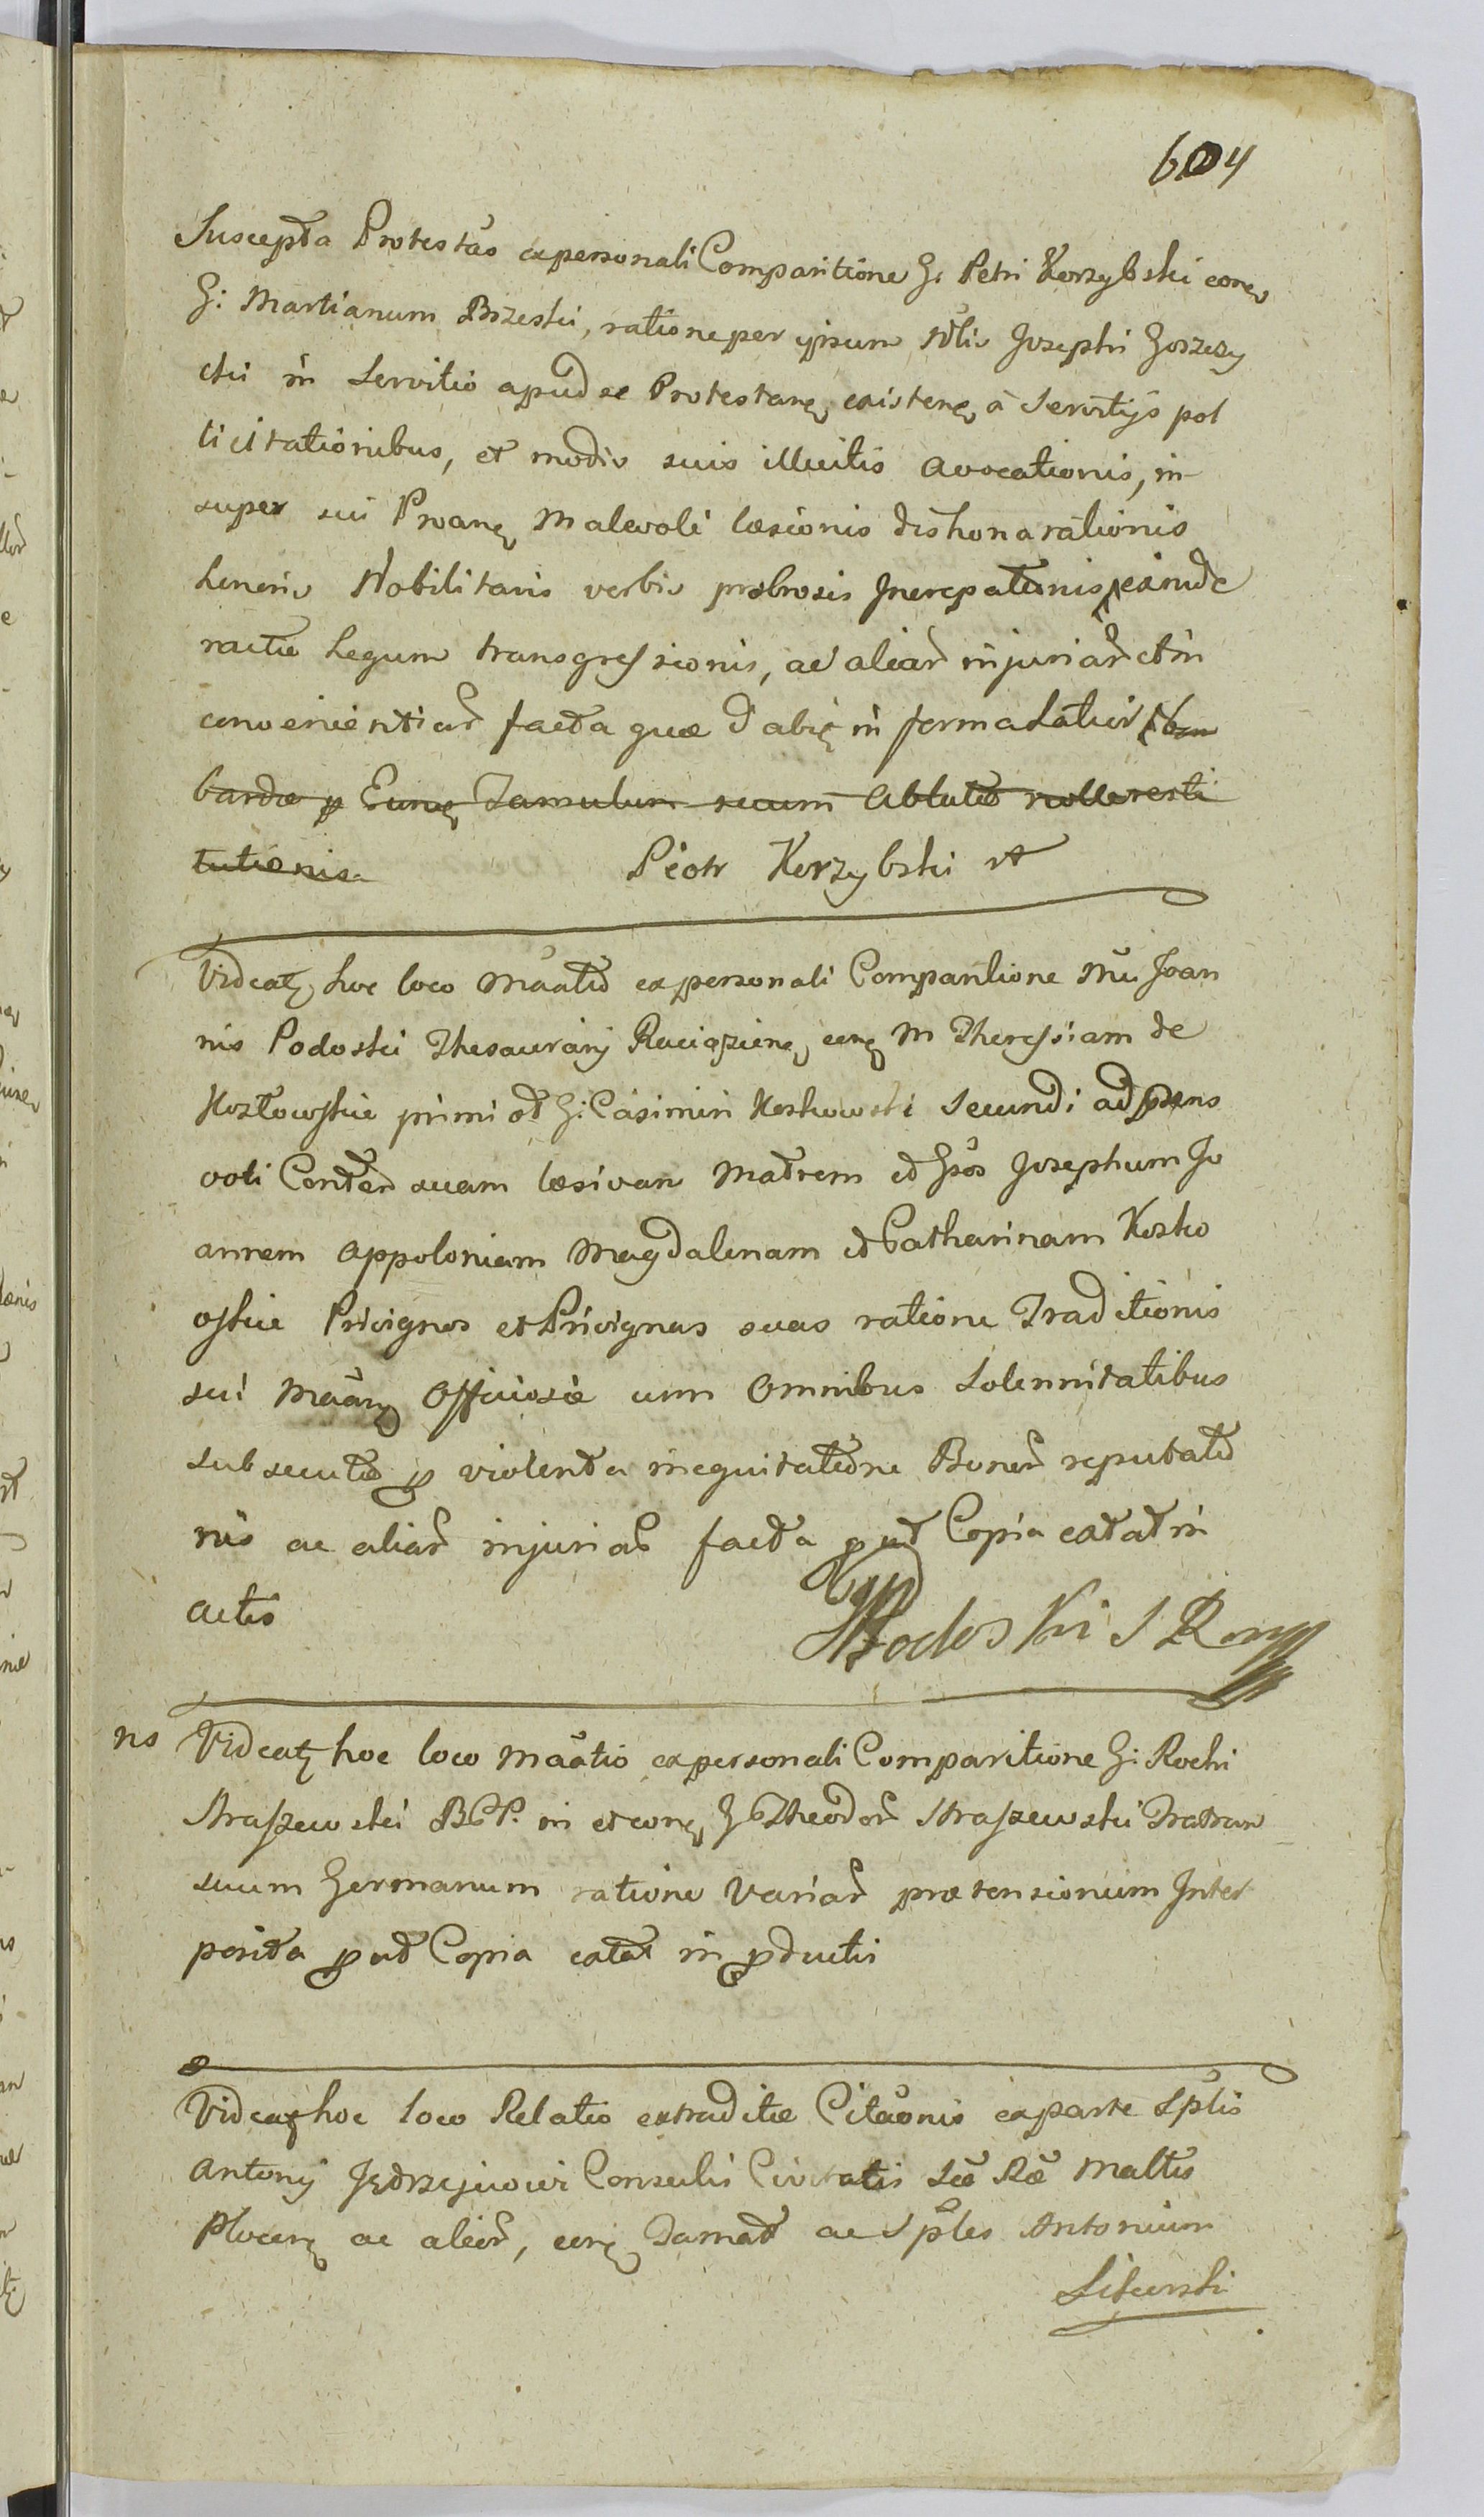 604
Suscepta Protestao ex personali Comparitione G: Petri Korzybski con
G: Martianum Brzeski, ratione per ipsum Nblis Josephi Goszczy
cki in Servitio apud se Protestan existen à Servitijs pol
licitationibus, et modis suis illicitis avocationis, in
super sui Proan Malevoli læsionis dishonorationis
honeris Nobilitaris verbis probrosis Increpationis, exinde
Legum transgressionis, ac aliar injuriar et in
convenientiar facta quæ dabit in forma Latiori
bardæ p Eun Famulum secum ablatæ nolle resti
tutionis
Piotr Korzybski
Videat hoc loco Maatio ex personali Comparitione Mci Joan
nis Podoski Thesaurarij Raciązien con M Theressiam de
Kozłowskie primi et G: Casimiri Koskowski Secundi ad præns
voti Conten suam læsivam Matrem et Gsos Josephum Jo
annem Appoloniam Magdalenam et Catharinam Kosko
wskie Privignos et Privignas suas ratione Traditionis
sui Maan Officiosæ cum Omnibus Solennitatibus
subsecutæ p violenta inequitatione Bonor reputatio
nis ac aliar injuriar facta put Copia extat in
actis
Podoski S R
ns Videat hoc loco Maatio ex personali Comparitione G: Rochi
Straszewski B C P. in et con G Theodor Straszewski Fratrem
suum Germanum ratione variar prætensionum Inter
posita put Copia extat in pductis
Videat hoc loco Relatio extraditæ Citaonis ex parte Splis
Antonij Jędrzejewicz Consulis Civitatis Sæ Ræ Mattis
Plocen ac alior, con Famat ac Sples Antonium
Liturski